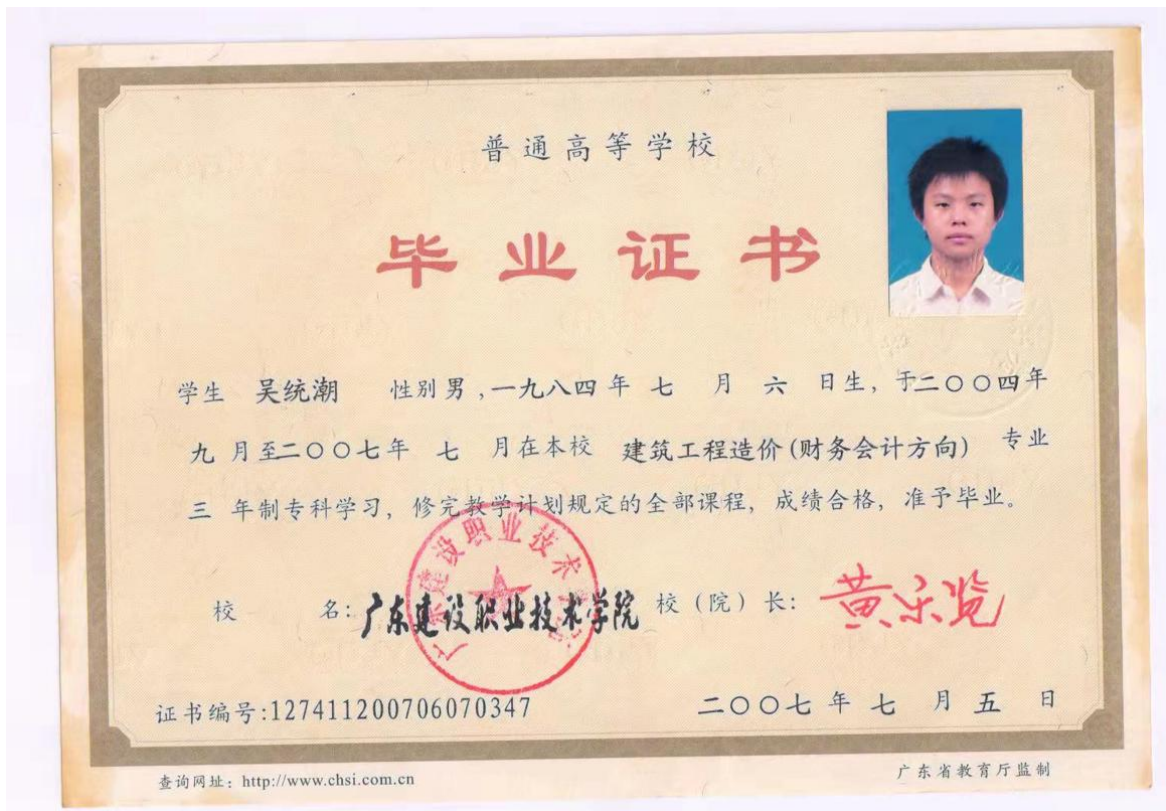 普通高等学校
毕业证书
学生 吴统潮 性别男,一九八四年 七 月 六 日生，于二〇〇四年
九 月至二〇〇七年 七 月在本校 建筑工程造价(财务会计方向) 专业
三 年制专科学习，修完教学计划规定的全部课程，成绩合格，准予毕业。
广东建设职业技术学院
校 名：广东建设职业技术学院 校（院）长：黄乐览
证书编号:127411200706070347 二〇〇七年 七 月 五 日
查询网址：http://www.chsi.com.cn 广东省教育厅监制